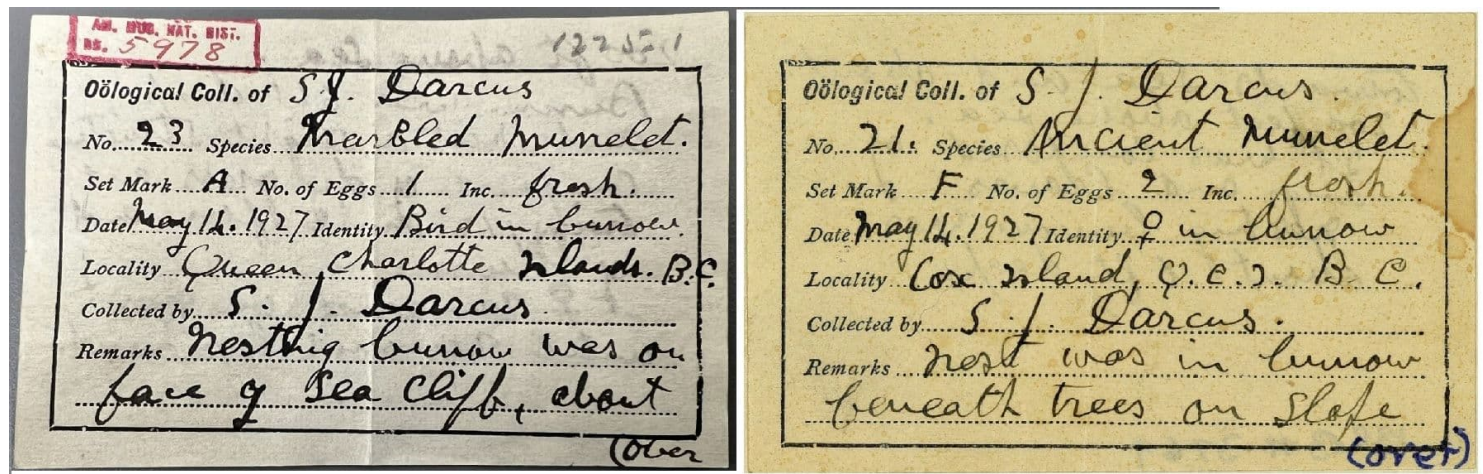 AM. MUS. NAT. HIST.
NS. 5978
12252-1
Oölogical Coll. of S. J. Darcus
No. 23 Species Marbled Murrelet.
Set Mark A No. of Eggs 1 Inc. fresh.
Date May 14. 1927 Identity Bird in burrow.
Locality Queen Charlotte Islands. B.C.
Collected by S. J. Darcus
Remarks Nesting burrow was on
face of sea cliff, about
(over
Oölogical Coll. of S. J. Darcus.
No. 21. Species Ancient Murrelet.
Set Mark F No. of Eggs 2 Inc. fresh.
Date May 14. 1927 Identity ♀ in burrow
Locality Cox Island, Q.C.I. B C.
Collected by S. J. Darcus.
Remarks Nest was in burrow
beneath trees on slope
(over)